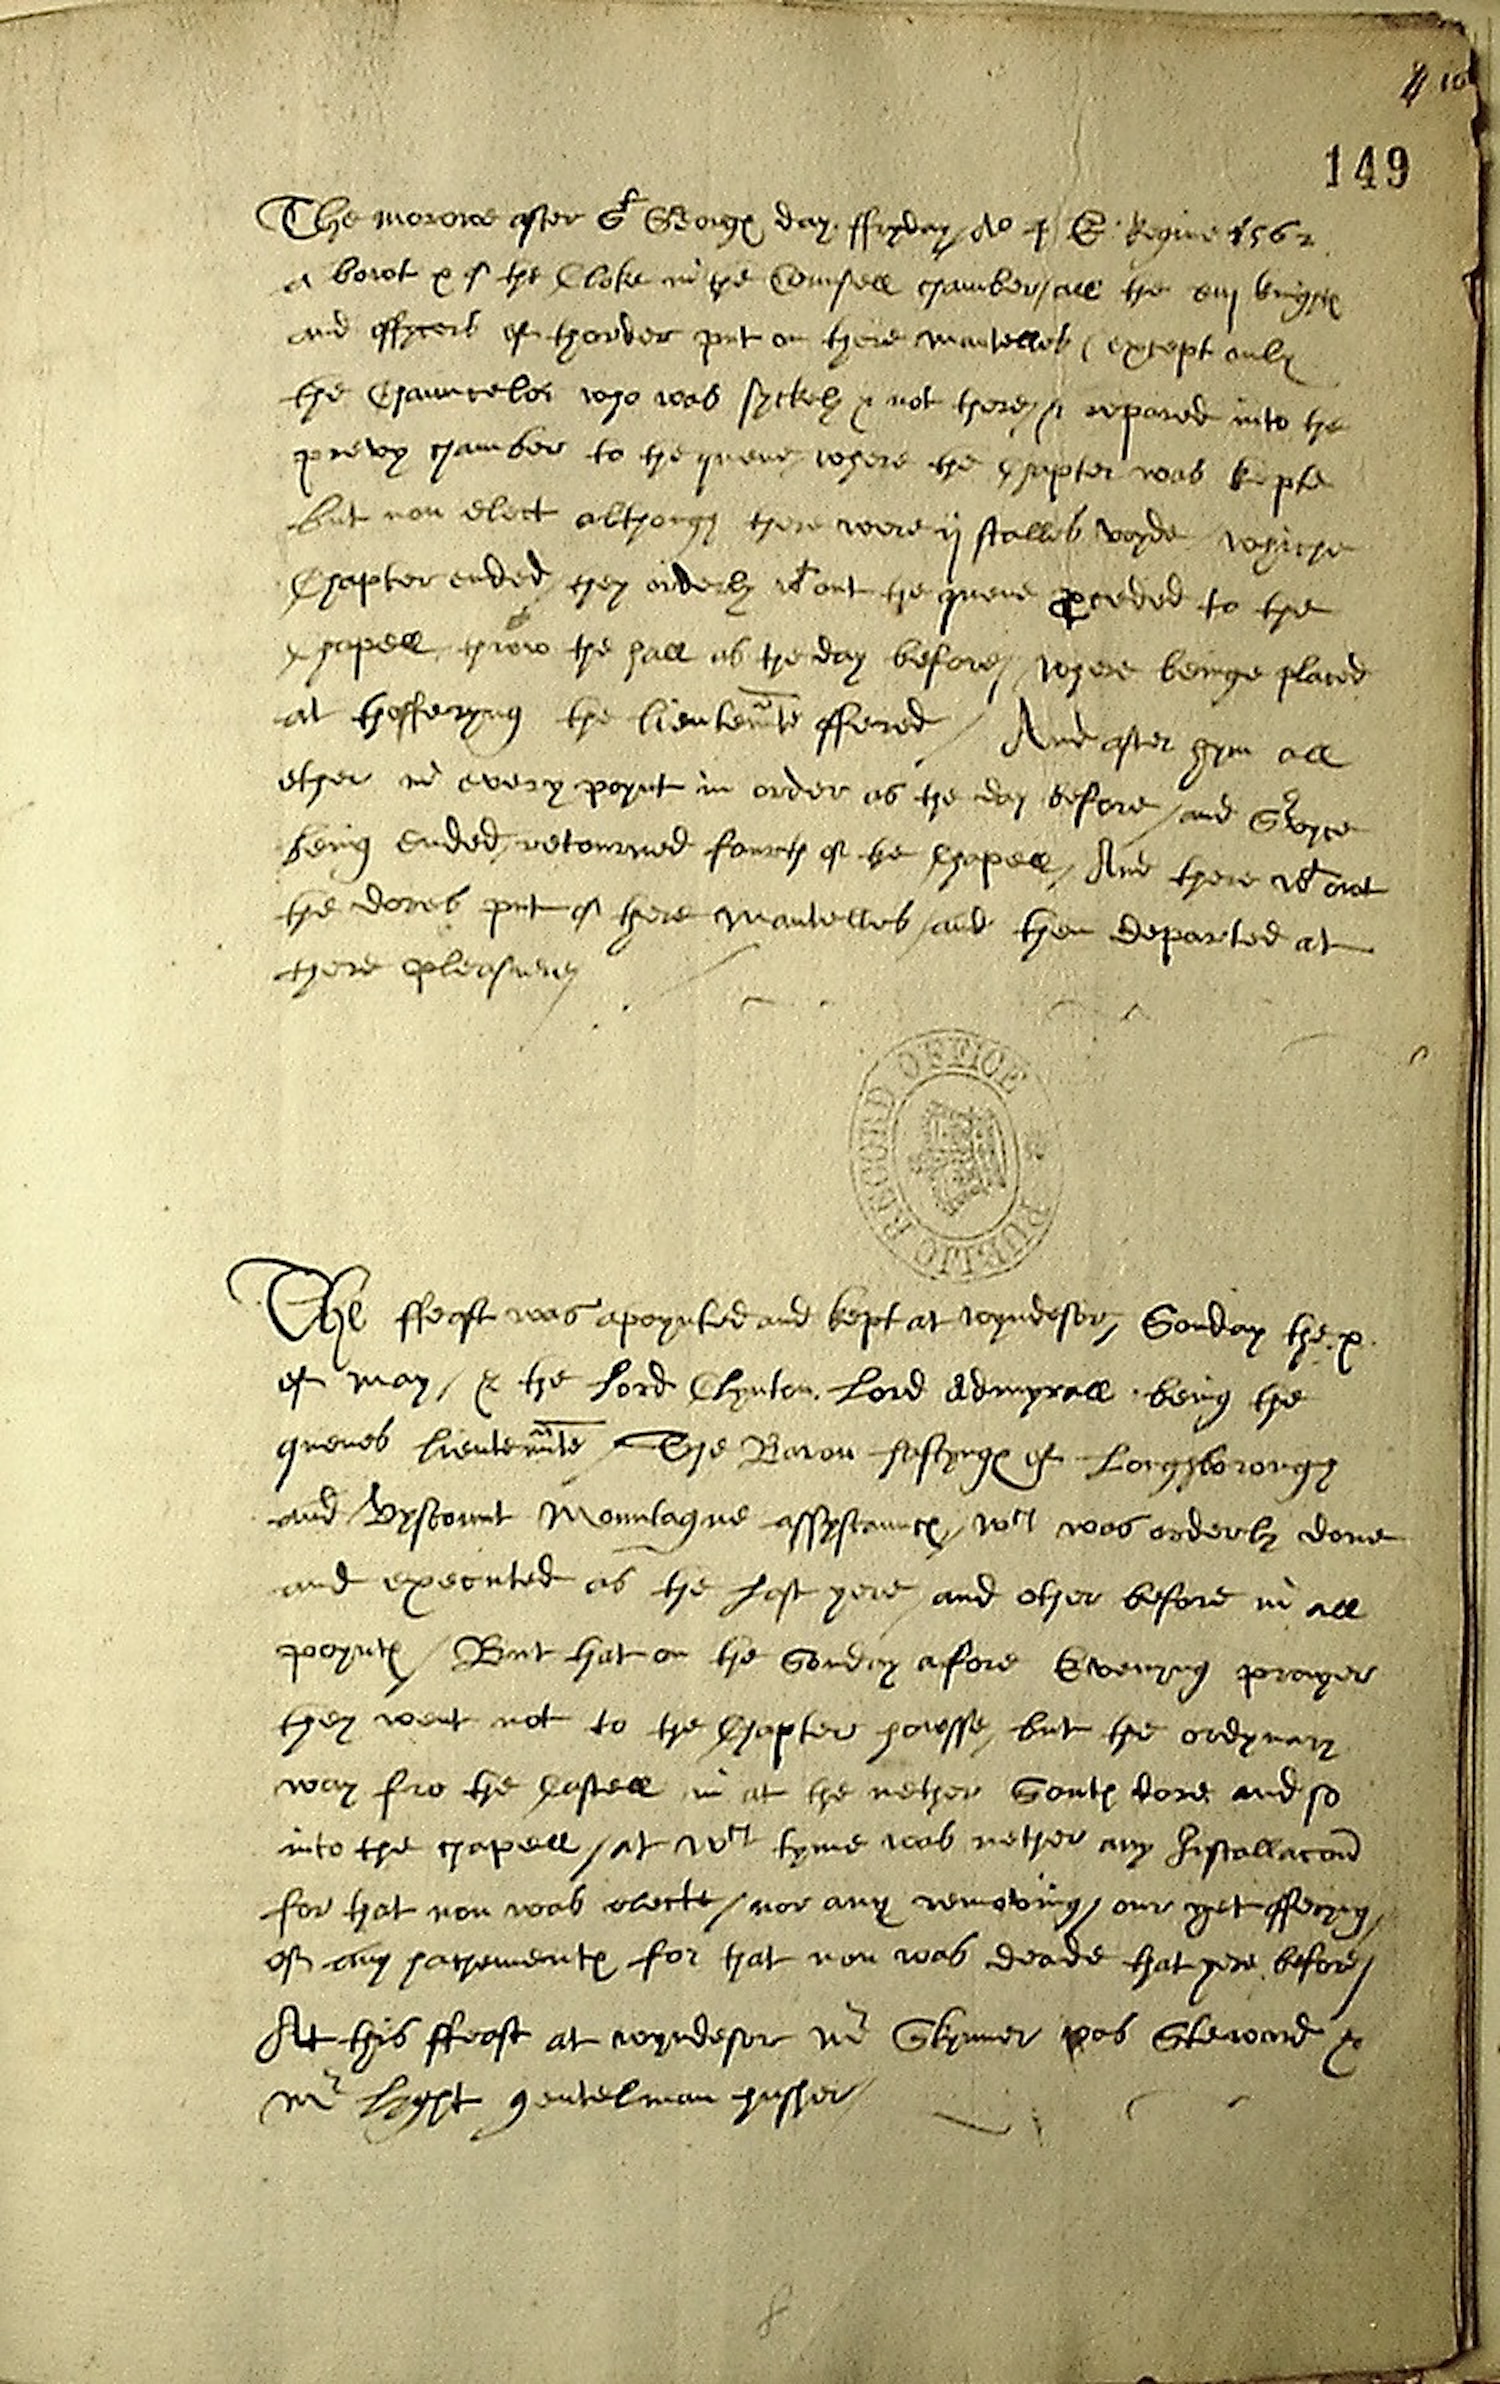 10
149
The morowe after St Georges day ffryday Ao 4 E Regine 1562
a bowt x of the Cloke in the Counsell chamber / all the knyghtes
and offycers of thorder put on there mantelles / except only
the Chauncelor who was syckely & not there / & repared into the
prevy chamber to the quene / where the Chapter was kepte
but non elect althowgh there were ij stalles voyde / whiche
Chapter ended / they orderly wt out the quene proceded to the
Chapell throw the hall as the day before / where beinge placed
at thofferyng the lieutennte offered / And after hym all
other in every poynt in order as the day before / and Svyce
being ended / retourned fourth of the Chapell / And there wt out
the dores put of there mantelles / and then departed at
there pleasure
PUBLIC RECORD OFFICE
The ffeast was apoynted and kept at wyndesor / Sonday the x
of may / & the Lord Clynton Lord Admyrall being the
quenes lieutennte / The Baron hastynges of Loughborough
and Vyscount Mountague assystauntes / wch was orderly done
and executed as the last yere / and other before in all
poyntes / But that on the Sonday afore Evenyng prayer
they went not to the Chapter howsse / but the ordynary
way fro the Castell in at the nether South dore and so
into the chapell / at wch tyme was nether any Installacon
for that non was electe / nor any removing / nor yet offeryng
of any hachementes for that non was deade that yere before /
At this ffeast at wyndesor Mr Skynner was Steward &
Mr Lyght gentelman husher